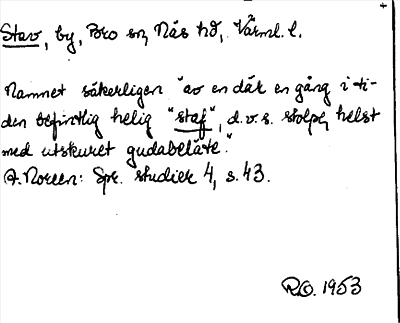 Stav, by, Bro sn, Näs hd, Värml. l.
Namnet säkerligen "av en där en gång i ti-
den befintlig helig "staf", d.v.s. stolpe, helst
med utskuret gudabeläte."
A. Noreen: Spr. studier 4, s. 43.
R.O. 1953